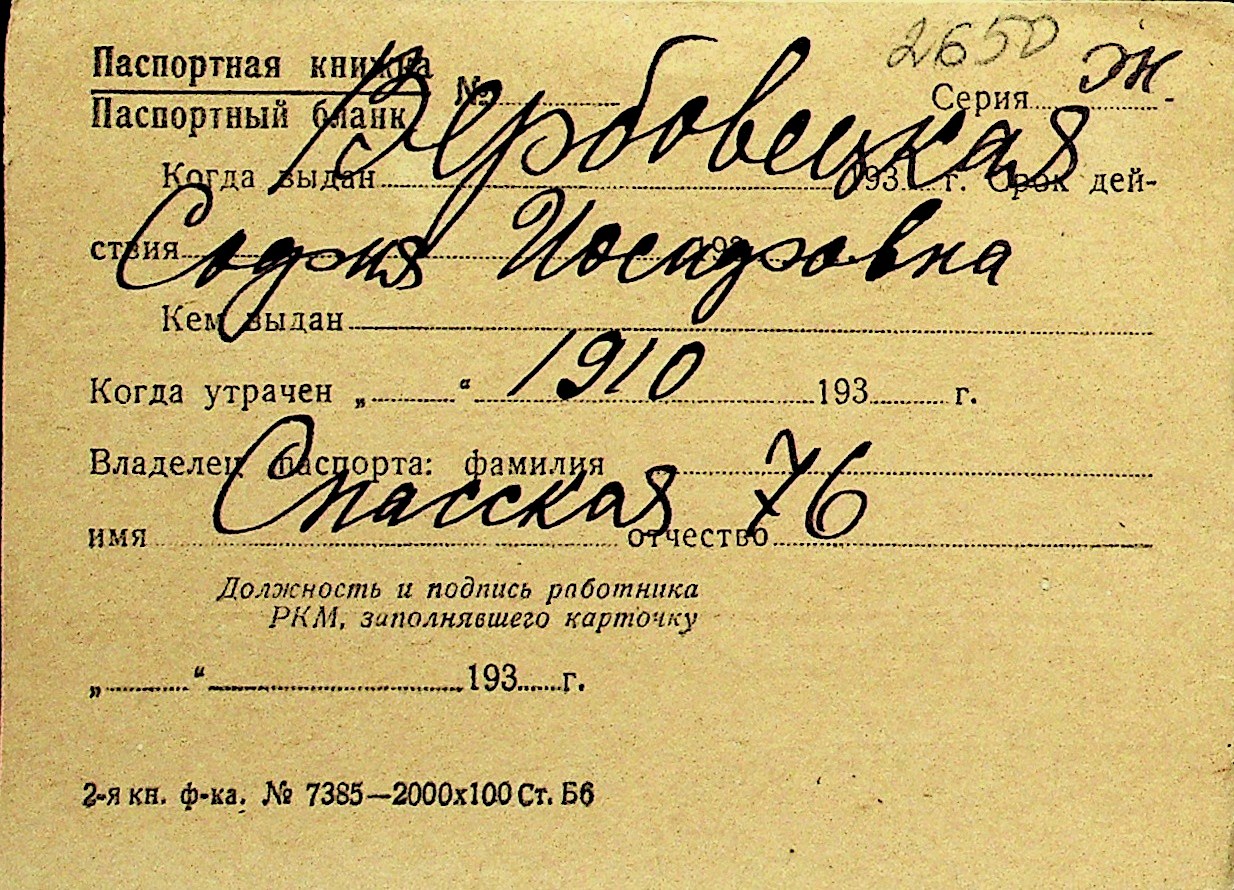 2650 ж
Паспортная книжка
Паспортный бланк № Серия
Вербовецкая
Когда выдан 193 г. Срок дей-
ствия 193
София Иосифовна
Кем выдан
1910
Когда утрачен „ “ 193 г.
Владелец паспорта: фамилия
Спасская 76
имя отчество
Должность и подпись работника
РКМ, заполнявшего карточку
„ “ 193 г.
2-я кн. ф-ка. № 7385—2000х100 Ст. Б6